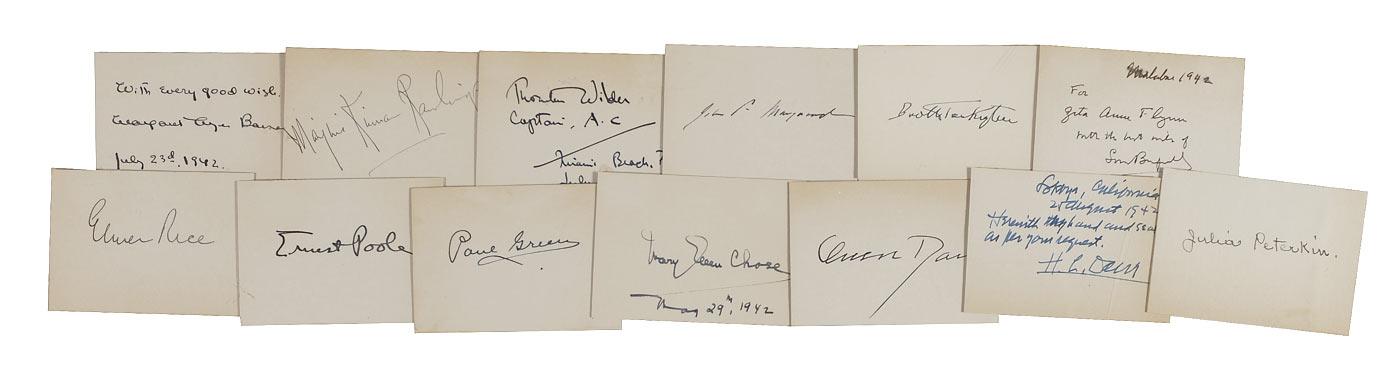 With every good wish.
Margaret Ayer Barnes
July 23rd, 1942.
Marjorie Kinnan Rawlings
Thornton Wilder
Captain, A.C
Miami Beach.
John P. Marquand
Booth Tarkington
Malabar 1942
For
Zeta Anne Flynn
with the best wishes of
Louis Bromfield
Elmer Rice
Ernest Poole
Paul Green
Mary Ellen Chase
May 29th, 1942
Owen Davis
California
25 August 1942
Herewith my hand and seal
as per your request.
H. L. Davis
Julia Peterkin.